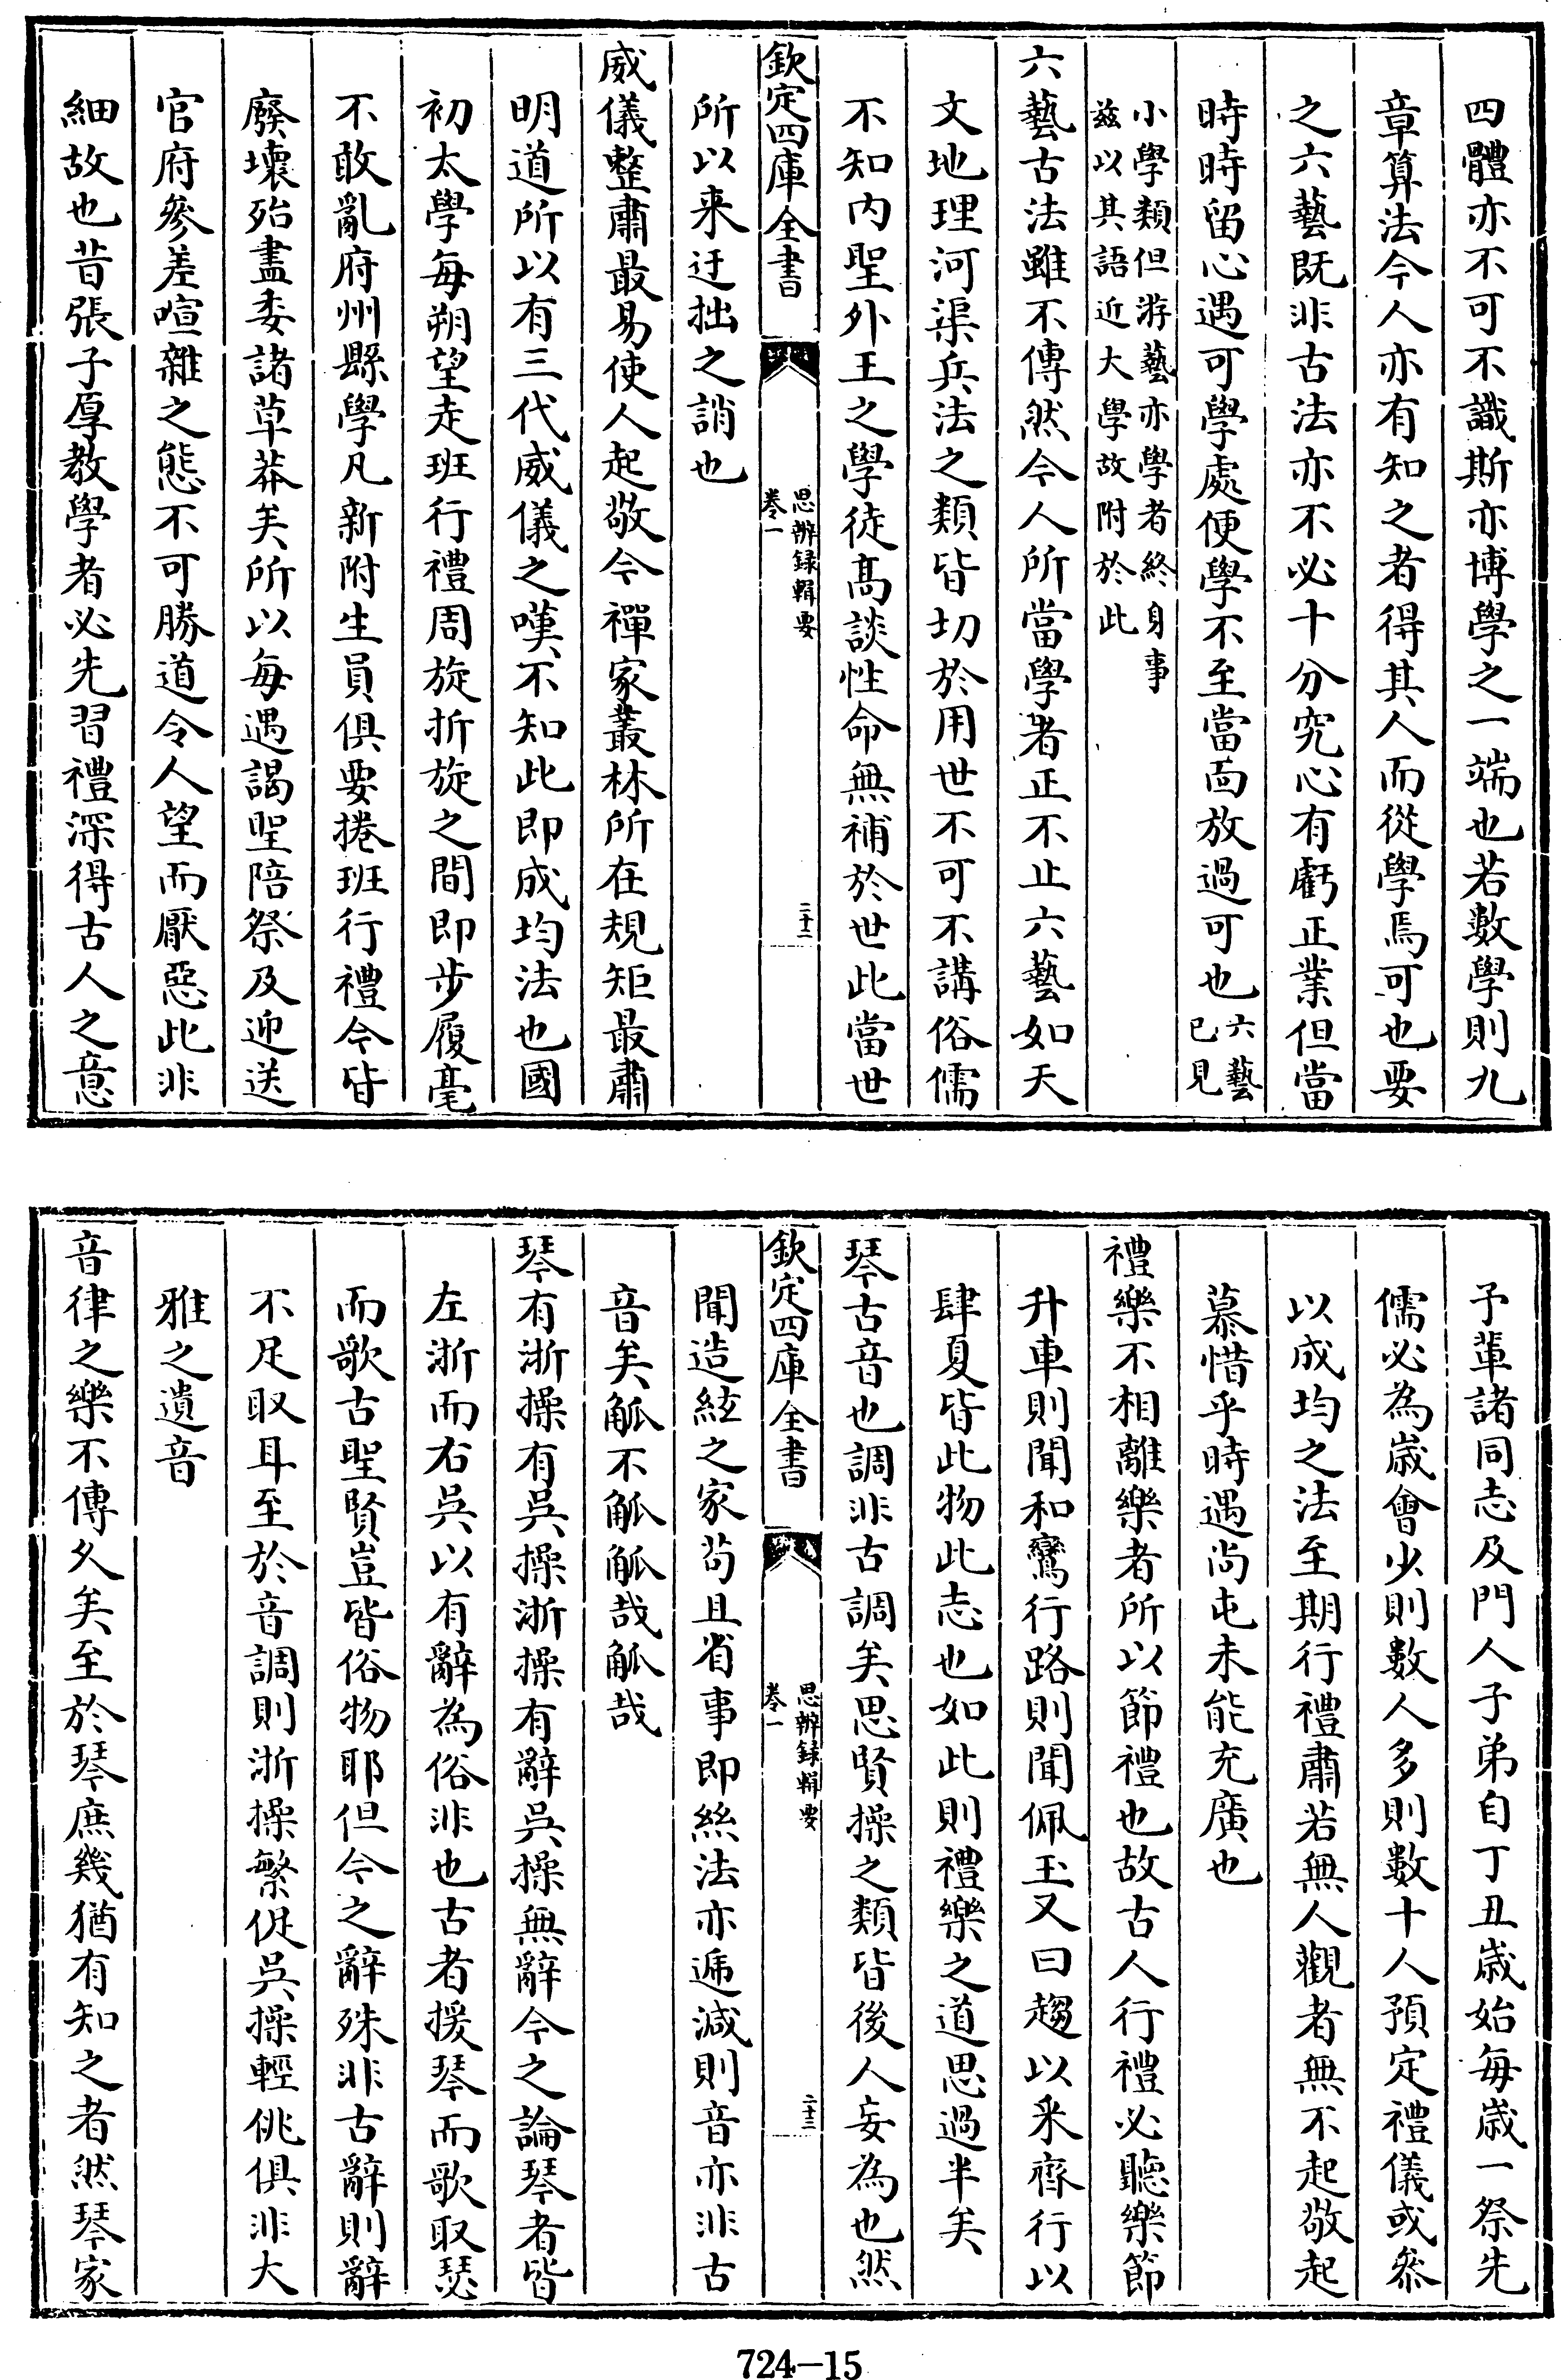 四體亦不可不識斯亦博學之一端也若數學則九
章算法今人亦有知之者得其人而從學焉可也要
之六藝既非古法亦不必十分究心有虧正業但當
時時留心遇可學處便學不至當面放過可也六藝
已見
小學類但游藝亦學者終身事
兹以其語近大學故附於此
六藝古法雖不傳然今人所當學者正不止六藝如天
文地理河渠兵法之類皆切於用世不可不講俗儒
不知内聖外王之學徒髙談性命無補於世此當世
欽定四庫全書
思辨録輯要
卷一
二十二
所以来迂拙之誚也
威儀整肅最易使人起敬今禪家叢林所在規矩最肅
明道所以有三代威儀之嘆不知此即成均法也國
初太學每朔望走班行禮周旋折旋之間即步履毫
不敢亂府州縣學凡新附生員俱要捲班行禮今皆
廢壞殆盡委諸草莽矣所以每遇謁聖陪祭及迎送
官府參差喧雜之態不可勝道令人望而厭惡此非
細故也昔張子厚教學者必先習禮深得古人之意
予輩諸同志及門人子弟自丁丑歲始每歲一祭先
儒必為歲會少則數人多則數十人預定禮儀或叅
以成均之法至期行禮肅若無人觀者無不起敬起
慕惜乎時遇尚屯未能充廣也
禮樂不相離樂者所以節禮也故古人行禮必聽樂節
升車則聞和鸞行路則聞佩玉又曰趨以采齊行以
肆夏皆此物此志也如此則禮樂之道思過半矣
琴古音也調非古調矣思賢操之類皆後人妄為也然
欽定四庫全書
思辨録輯要
卷一
二十三
聞造絃之家苟且省事即絲法亦遞減則音亦非古
音矣觚不觚觚哉觚哉
琴有浙操有吳操浙操有辭吳操無辭今之論琴者皆
左浙而右吳以有辭為俗非也古者援琴而歌取瑟
而歌古聖賢豈皆俗物耶但今之辭殊非古辭則辭
不足取耳至於音調則浙操繁促吳操輕佻俱非大
雅之遺音
音律之樂不傳乆矣至於琴庶幾猶有知之者然琴家
724-15